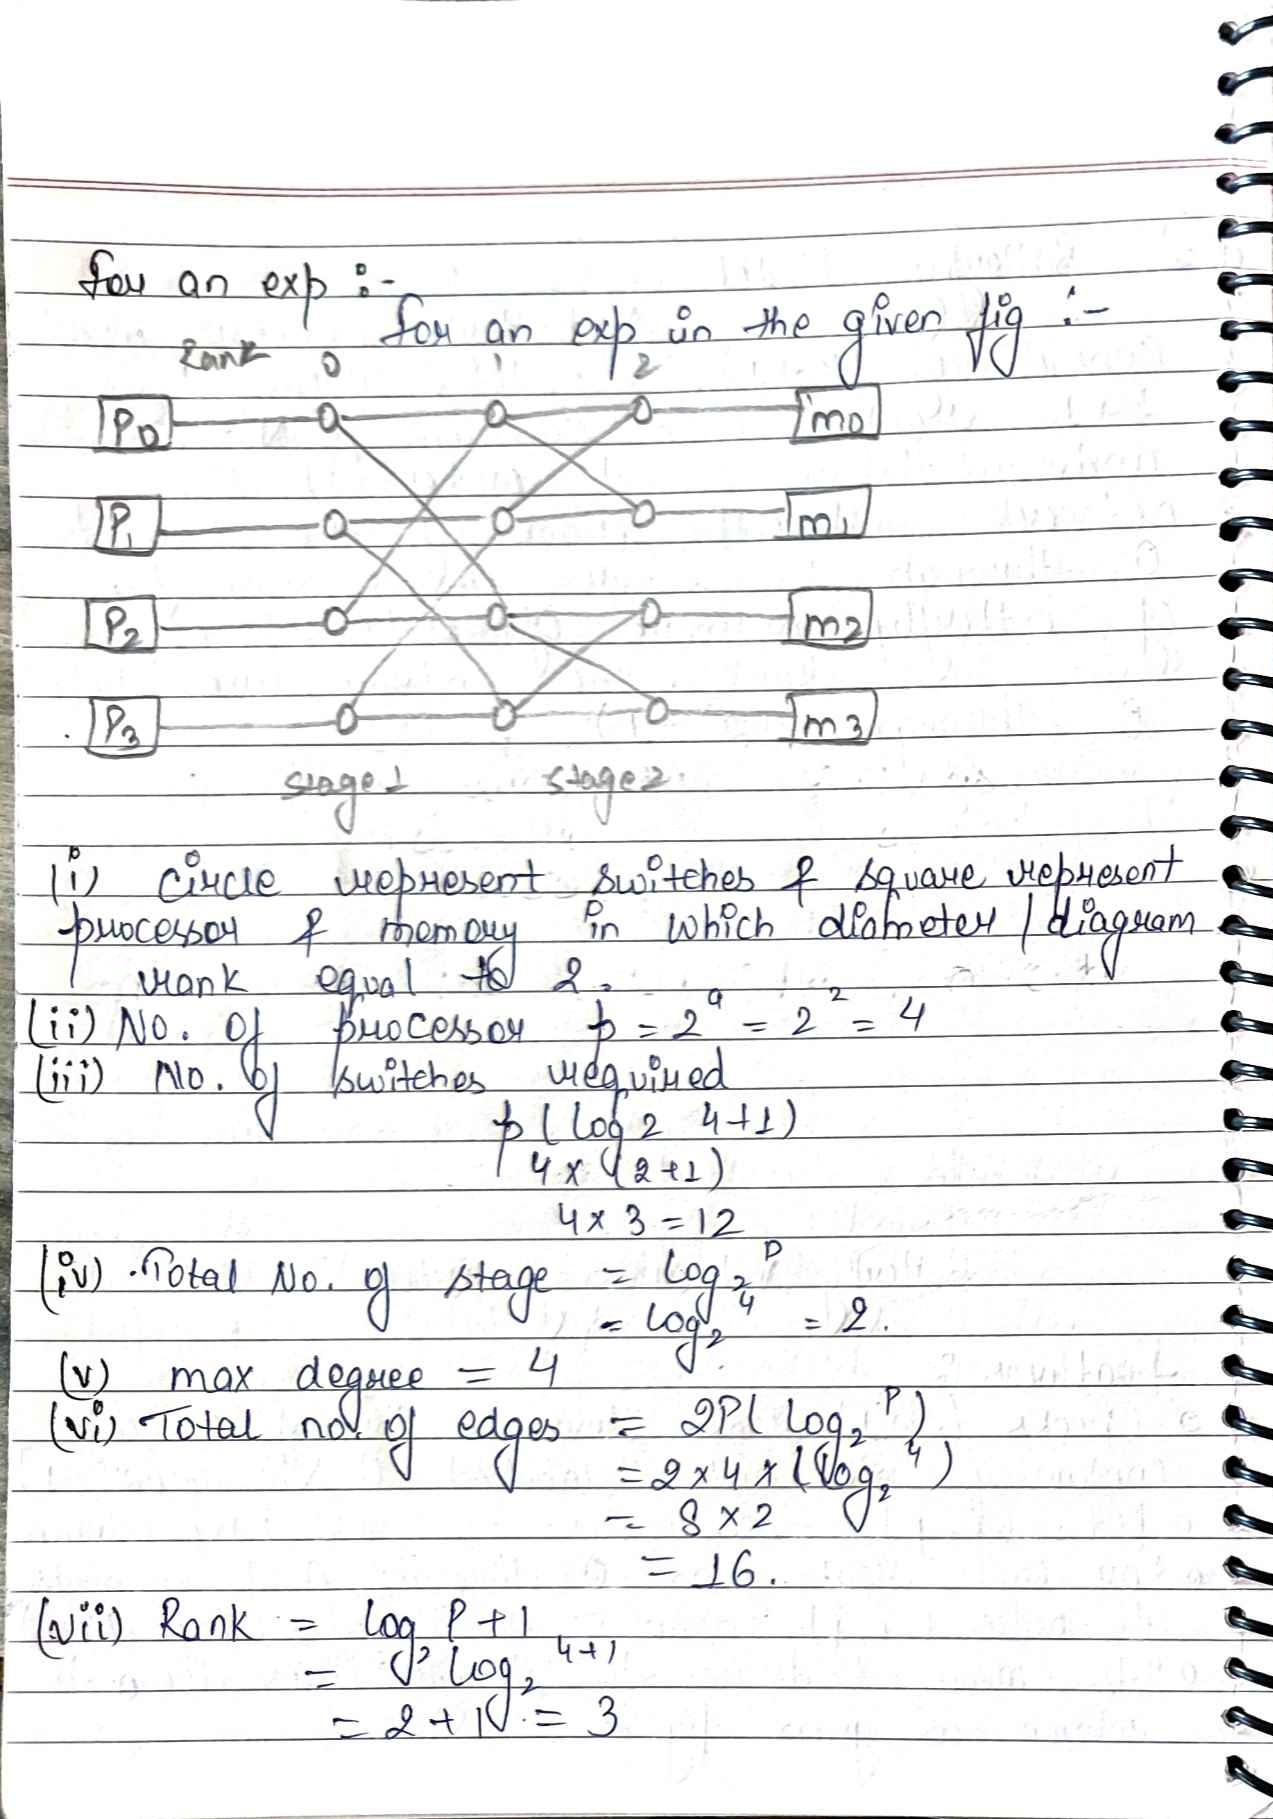 for an exp :-
for an exp in the given fig :-
Rank 0 1 2
P0 m0
P1 m1
P2 m2
P3 m3
stage 1 stage 2
(i) Circle represent switches & square represent
processor & memory in which diameter / diagram
rank equal to 2.
(ii) No. of processor p = 2^q = 2^2 = 4
(iii) No. of switches required
p ( log 2 4+1)
4 x (2+1)
4 x 3 = 12
(iv) Total No. of stage = log₂^P
= log₂^4 = 2.
(v) max degree = 4
(vi) Total no. of edges = 2P( log₂^P)
= 2 x 4 x (log₂^4)
= 8 x 2
= 16.
(vii) Rank = log₂ P+1
= log₂^4+1
= 2+1 = 3